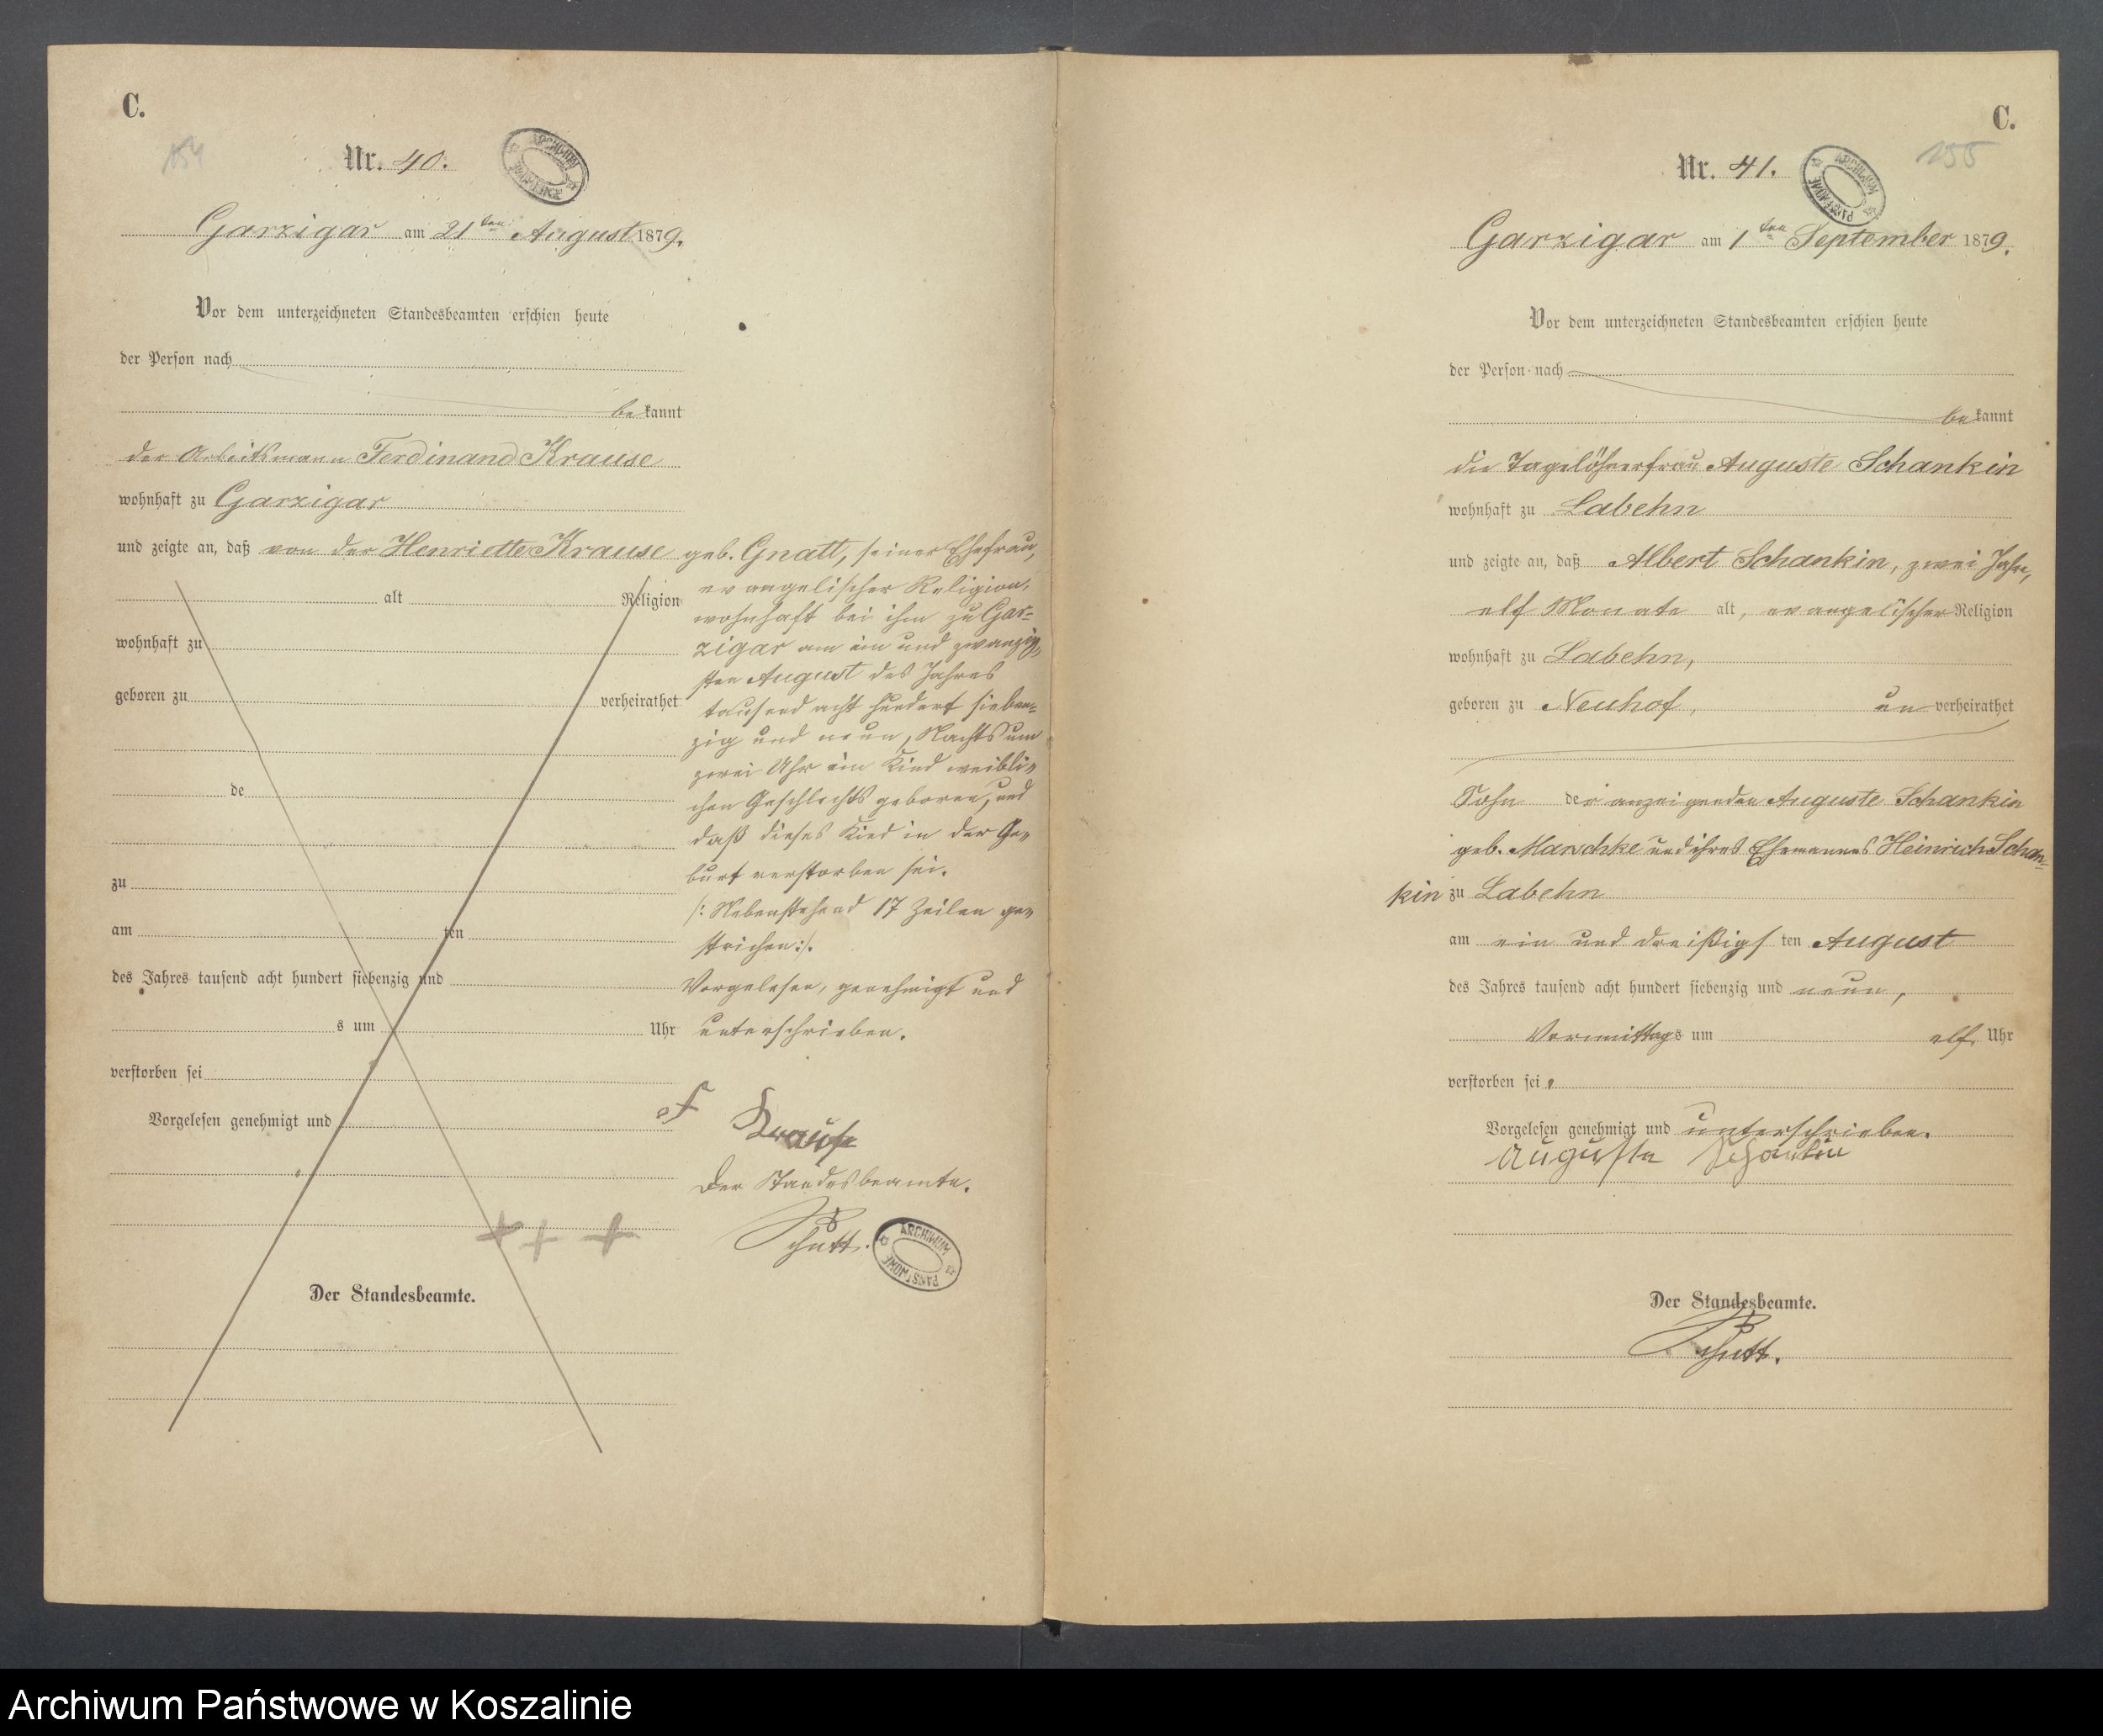 C.
154
Nr. 40.
ARCHIWUM PAŃSTWOWE
Garzigar am 21ten August 1879.
Vor dem unterzeichneten Standesbeamten erschien heute
der Person nach
be kannt
der Arbeitsmann Ferdinand Krause
wohnhaft zu Garzigar
und zeigte an, daß von der Henriette Krause geb. Gnatt, seiner Ehefrau,
evangelischer Religion,
wohnhaft bei ihm zu Gar=
zigar am ein und zwanzig=
sten August des Jahres
tausend acht hundert sieben=
zig und neun, Nachts um
zwei Uhr ein Kind weibli=
chen Geschlechts geboren, und
daß dieses Kind in der Ge=
burt verstorben sei.
/: Nebenstehend 17 Zeilen ge=
strichen :/.
Vorgelesen, genehmigt und
unterschrieben.
Krause
Der Standesbeamte.
Schutt.
ARCHIWUM PAŃSTWOWE
alt Religion
wohnhaft zu
geboren zu verheirathet
de
zu
am ten
des Jahres tausend acht hundert siebenzig und
s um Uhr
verstorben sei
Vorgelesen genehmigt und
+ + +
Der Standesbeamte.
C.
155
Nr. 41.
ARCHIWUM PAŃSTWOWE
Garzigar am 1ten September 1879.
Vor dem unterzeichneten Standesbeamten erschien heute
der Person nach
be kannt
die Tagelöhnerfrau Auguste Schankin
wohnhaft zu Labehn
und zeigte an, daß Albert Schankin, zwei Jahre,
elf Monate alt, evangelischer Religion
wohnhaft zu Labehn,
geboren zu Neuhof, un verheirathet
Sohn der anzeigenden Auguste Schankin
geb. Marschke und ihres Ehemannes Heinrich Schan=
kin zu Labehn
am ein und dreißigs ten August
des Jahres tausend acht hundert siebenzig und neun,
Vormittags um elf Uhr
verstorben sei.
Vorgelesen genehmigt und unterschrieben.
Auguste Schankin
Der Standesbeamte.
Schutt.
Archiwum Państwowe w Koszalinie